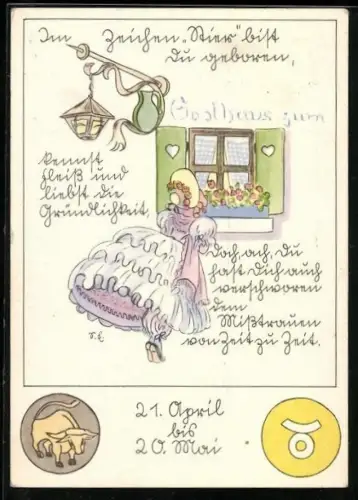 Im Zeichen „Stier“ bist
Du geboren,
Gasthaus zum
kennst
Fleiß und
liebst die
Gründlichkeit,
doch, ach, du
hast Dich auch
verschworen
dem
Mißtrauen
von Zeit zu Zeit.
21. April
bis
20. Mai